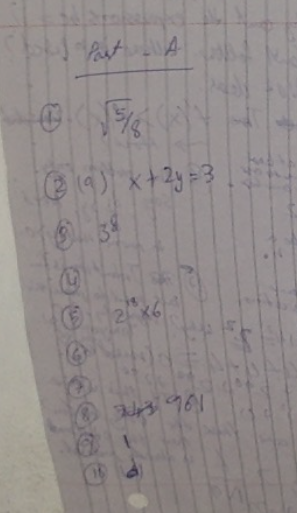 Part - A
① √5/8
② (a) x + 2y = 3
③ 3⁸
④
⑤ 2¹³ × 6
⑥
⑦
⑧ 961
⑨ 1